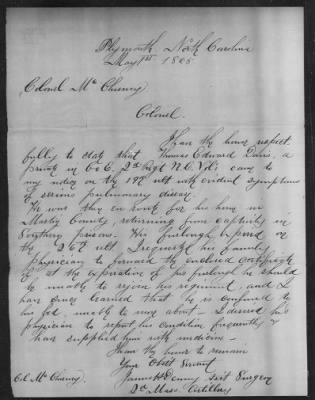 Plymouth North Carolina
May 1st 1865
Colonel McChesney
Colonel.
I have the honor respect-
fully to state that Thomas Edward Davis, a
private in Co E, 2d Regt N.C. Vols came to
my notice on the 19th ult with evident symptoms
of serious pulmonary disease.
He was then en route for his home in
Martin County, returning from captivity in
Southern prisons. His furlough expired on
the 26th ult. I requested his family
physician to forward the enclosed certificate
if at the expiration of his furlough he should
be unable to rejoin his regiment, and I
have since learned that he is confined to
his bed, unable to move about. I desired his
physician to report his condition frequently &
have supplied him with medicine.
I have the honor to remain
Your Obdt Servant
Denny Asst Surgeon
2d Mass. Artillery
Col McChesney